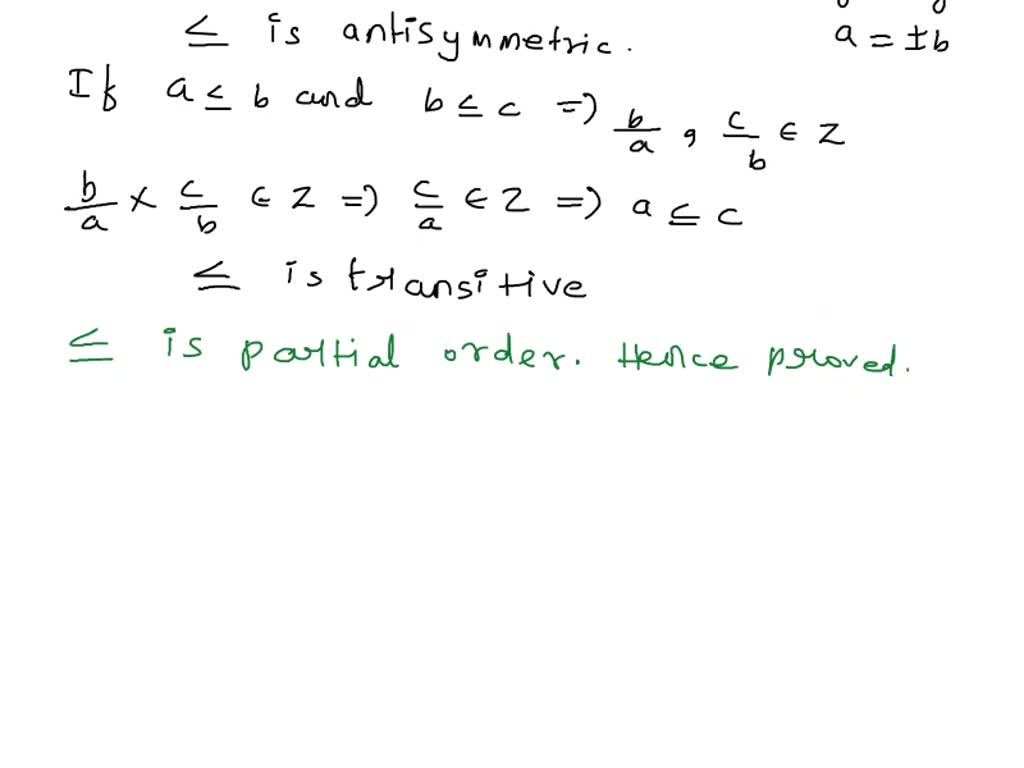 ≤ is antisymmetric. a = ±b
If a ≤ b and b ≤ c => b/a , c/b ∈ Z
b/a × c/b ∈ Z => c/a ∈ Z => a ≤ c
≤ is transitive
≤ is partial order. Hence proved.